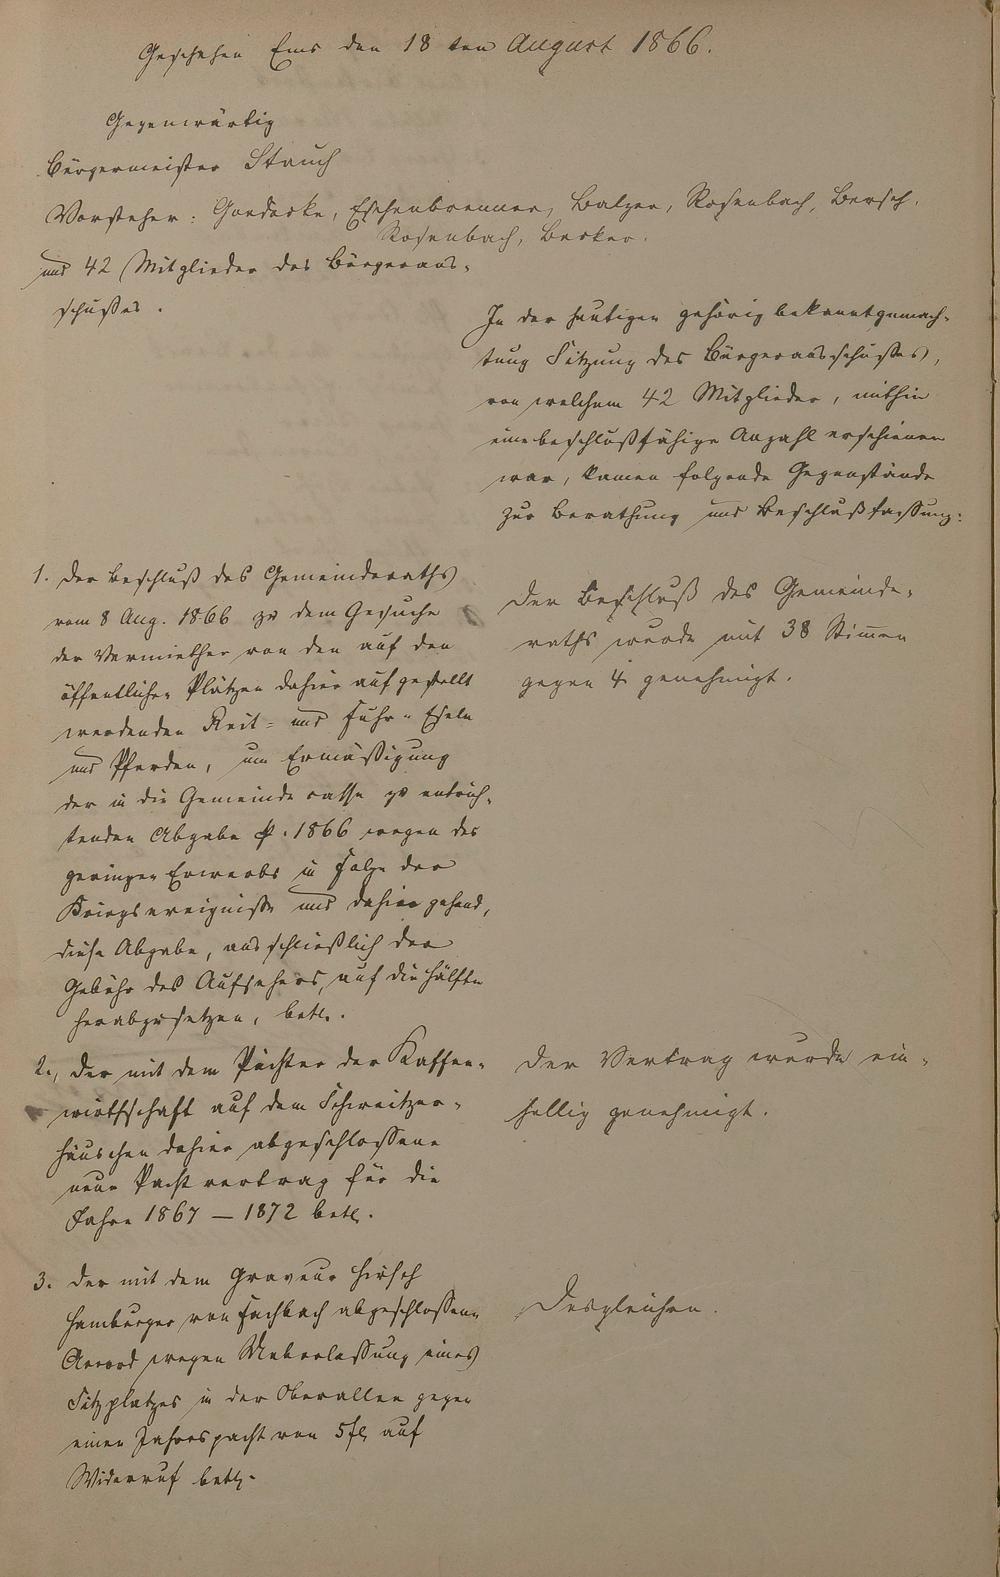 Geschehen Ems den 18 ten August 1866.
Gegenwärtig
Bürgermeister Stauch
Vorsteher: Goedecke, Eschenbrenner, Balzer, Rosenbach, Bersch.
Rosenbach, Becker.
und 42 Mitglieder des Bürgeraus-
schußes.
In der heutigen gehörig bekanntgemach-
tung Sitzung des Bürgerausschußes,
von welchem 42 Mitglieder, mithin
eine beschlußfähige Anzahl erschienen
war, kamen folgende Gegenstände
zur Berathung und Beschlußfassung:
1. Der Beschluß des Gemeinderaths
vom 8 Aug. 1866 zu dem Gesuche
der Vermiether von den auf den
öffentlichen Plätzen dahier aufgestellt
werdenden Reit- und Fuhr- Eseln
und Pferden, um Ermäßigung
der in die Gemeindecasse zu entrich-
tenden Abgabe p. 1866 wegen des
geringen Erwerbs in Folge der
Kriegsereigniße und dahin gehend,
diese Abgabe, ausschließlich der
Gebühr des Aufsehers, auf die Hälfte
herabzusetzen, betr.
Der Beschluß des Gemeinde-
raths wurde mit 38 Stimmen
gegen 4 genehmigt.
2., Der mit dem Pächter der Kaffee-
wirthschaft auf dem Schweitzer-
häuschen dahier abgeschlossene
neue Pachtvertrag für die
Jahre 1867 – 1872 betr.
Der Vertrag wurde ein-
hellig genehmigt.
3. Der mit dem Graveur Hirsch
Hamburger von Fachbach abgeschlossene
Accord wegen Ueberlassung eines
Sitzplatzes in der Oberallee gegen
einen Jahrespacht von 5 fl auf
Widerruf betr.
Desgleichen.